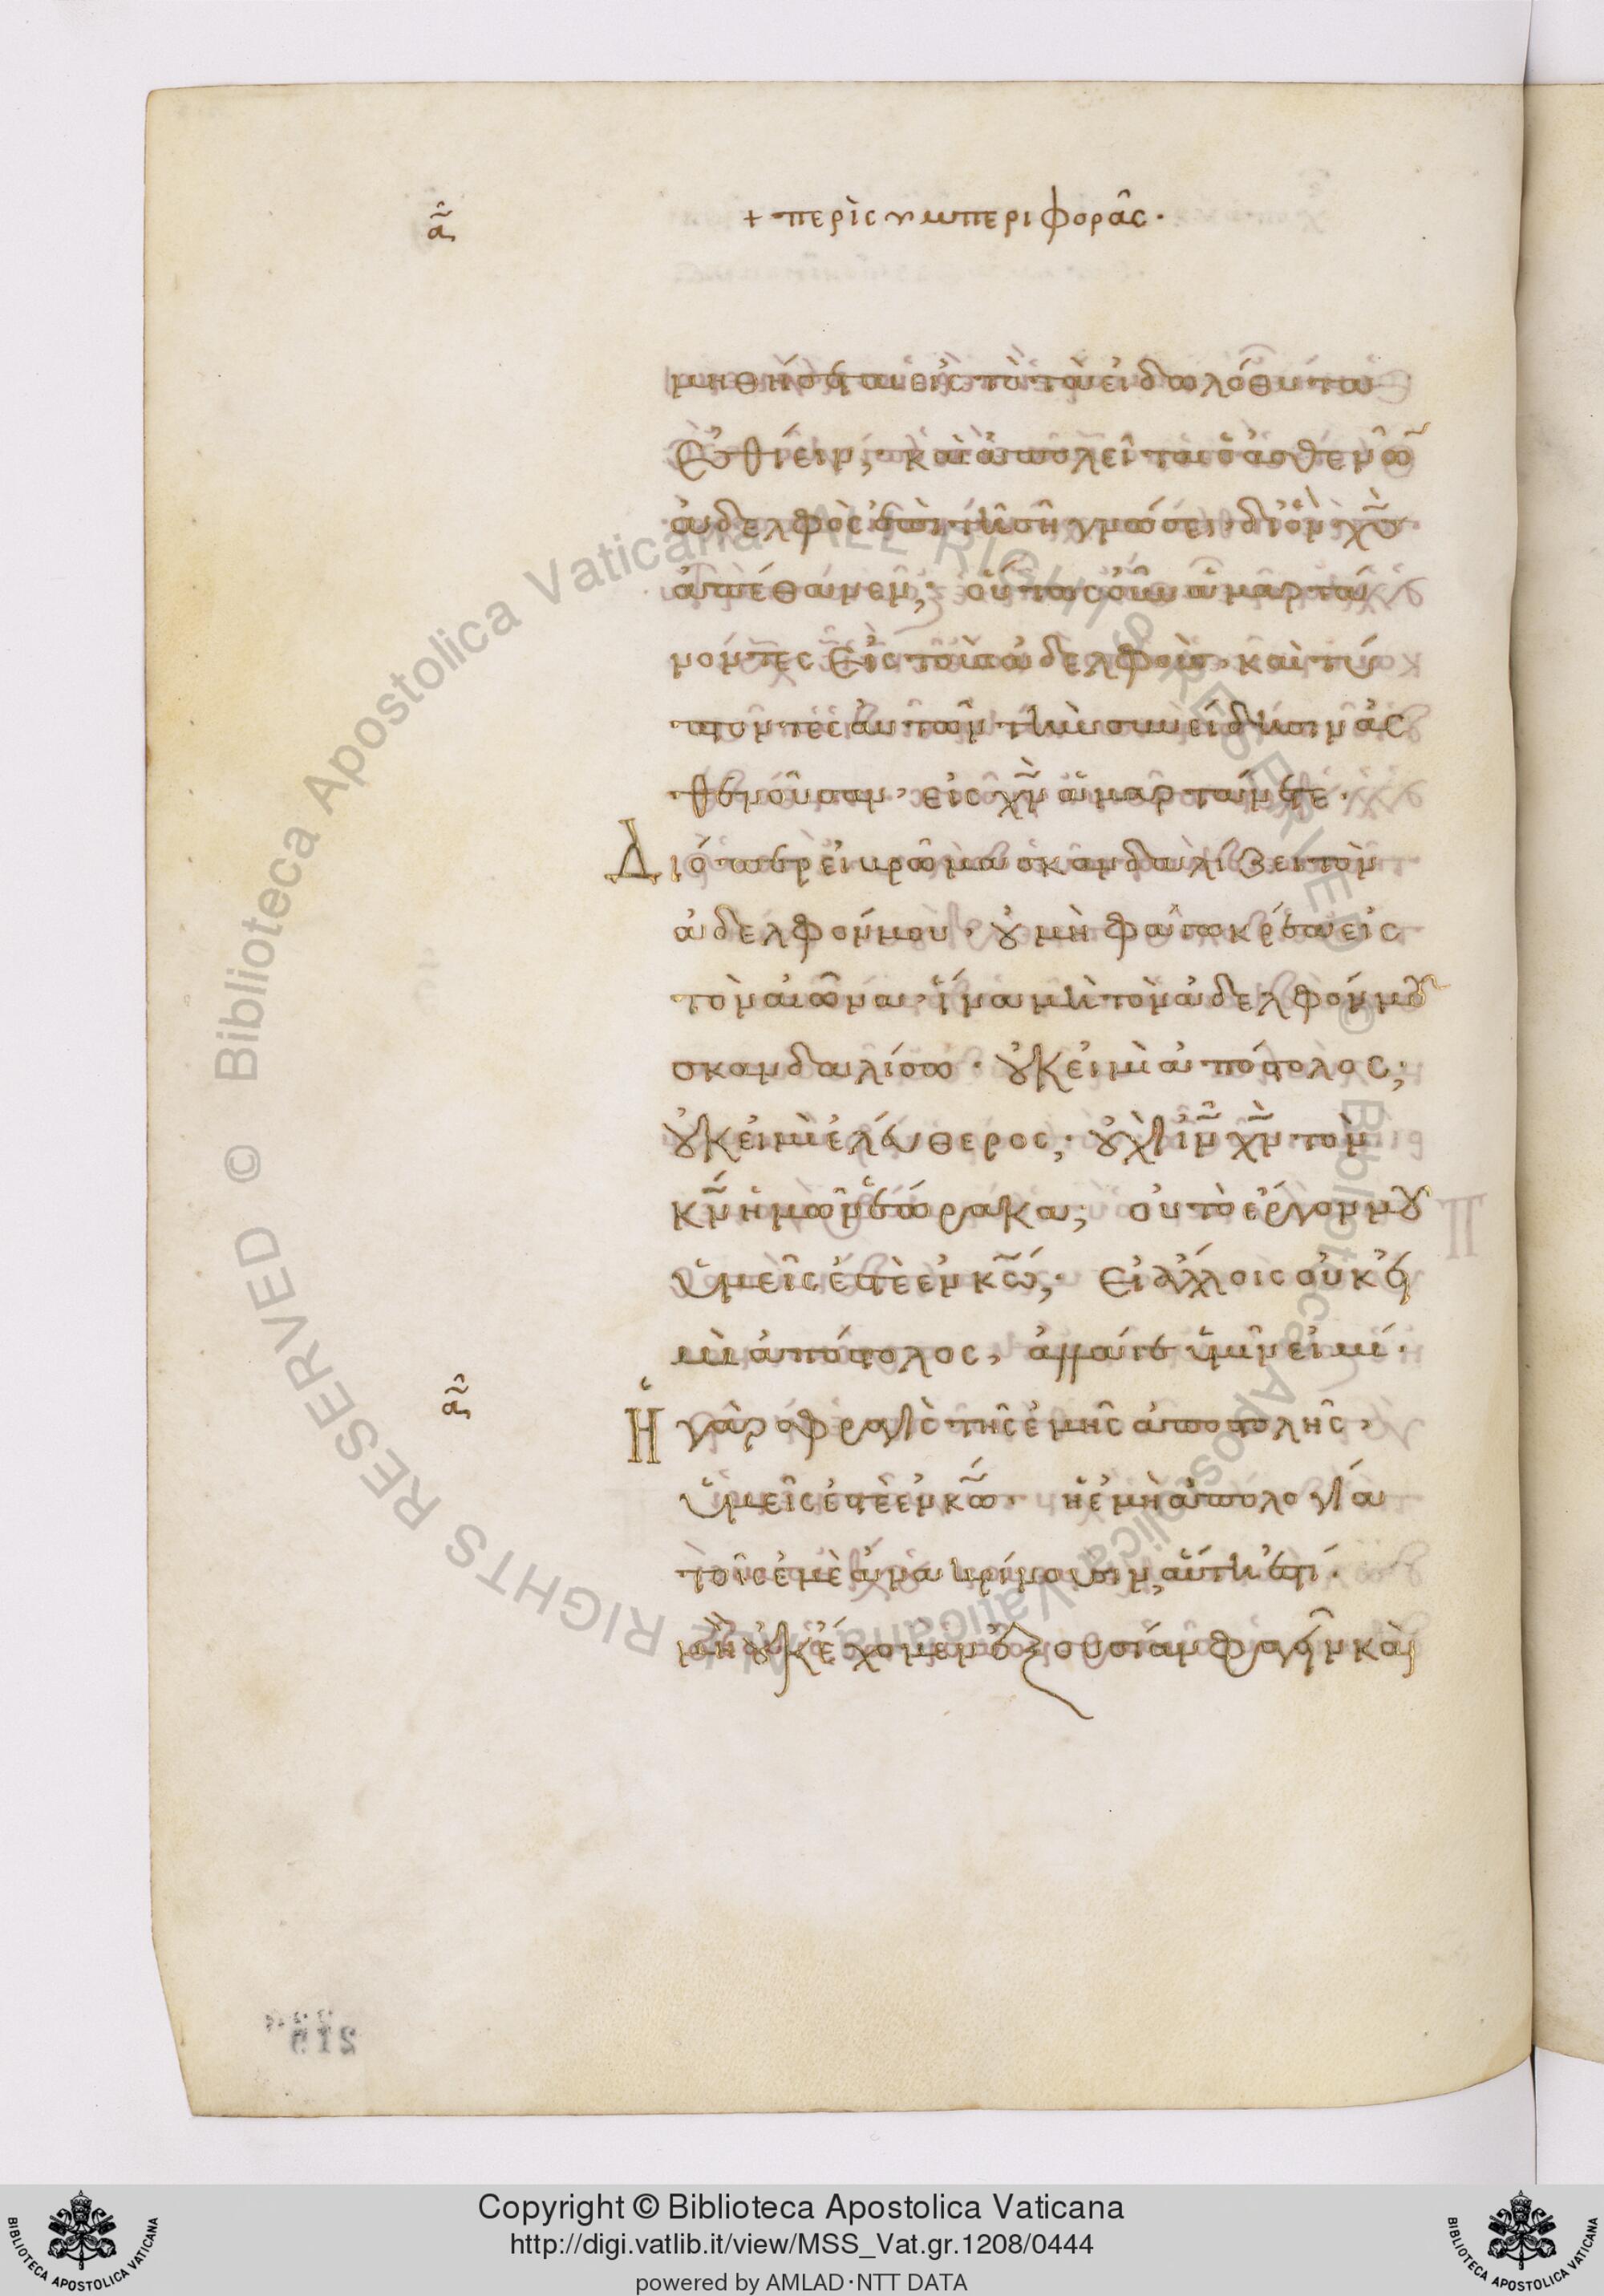 α
+ περὶ συμπεριφορᾶς.
μηθήσεται εἰς τὸ τὰ εἰδωλόθυτα
ἐσθίειν; καὶ ἀπολεῖται ὁ ἀσθενῶ
ἀδελφὸς ἐπὶ τῆ σῆ γνώσει, δι' ὃν χς
ἀπέθανεν; οὕτως οὖν ἁμαρτά
νοντες εἰς τοὺς ἀδελφοὺς, καὶ τύ
πτοντες αὐτῶν τὴν συνείδησιν ἀσ
θενοῦσαν, εἰς χν ἁμαρτάνετε.
Διόπερ εἰ βρῶμα σκανδαλίζει τὸν
ἀδελφόν μου, οὐ μὴ φάγω κρέα εἰς
τὸν αἰῶνα, ἵνα μὴ τὸν ἀδελφόν μου
σκανδαλίσω. οὐκ εἰμὶ ἀπόστολος;
οὐκ εἰμὶ ἐλεύθερος; οὐχὶ ιν χν τὸν
κν ἡμῶν ἑώρακα; οὐ τὸ ἔργον μου
ὑμεῖς ἐστὲ ἐν κω; Εἰ ἄλλοις οὐκ εἰ
μὶ ἀπόστολος, ἀλλά γε ὑμῖν εἰμί.
α
Ἡ γὰρ σφραγὶς τῆς ἐμῆς ἀποστολῆς,
ὑμεῖς ἐστὲ ἐν κω. ἡ ἐμὴ ἀπολογία
τοῖς ἐμὲ ἀνακρίνουσιν, αὕτη ἐστί.
μὴ οὐκ ἔχομεν ἐξουσίαν φαγεῖν καὶ
215
Copyright © Biblioteca Apostolica Vaticana
http://digi.vatlib.it/view/MSS_Vat.gr.1208/0444
powered by AMLAD·NTT DATA
BIBLIOTECA APOSTOLICA VATICANA
BIBLIOTECA APOSTOLICA VATICANA
© Biblioteca Apostolica Vaticana ALL RIGHTS RESERVED
© Biblioteca Apostolica Vaticana ALL RIGHTS RESERVED